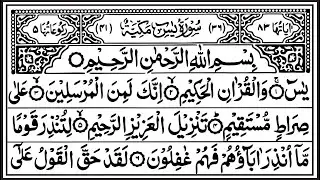 اٰيَاتُهَا ٨٣ (٣٦) سُوْرَةُ يٰسٓ مَكِّيَّةٌ (٤١) رُكُوْعَاتُهَا ٥
بِسْمِ اللّٰهِ الرَّحْمٰنِ الرَّحِيْمِ
يٰسٓ وَالْقُرْاٰنِ الْحَكِيْمِ اِنَّكَ لَمِنَ الْمُرْسَلِيْنَ عَلٰى
صِرَاطٍ مُّسْتَقِيْمٍ تَنْزِيْلَ الْعَزِيْزِ الرَّحِيْمِ لِتُنْذِرَ قَوْمًا
مَّاۤ اُنْذِرَ اٰبَآؤُهُمْ فَهُمْ غٰفِلُوْنَ لَقَدْ حَقَّ الْقَوْلُ عَلٰٓى